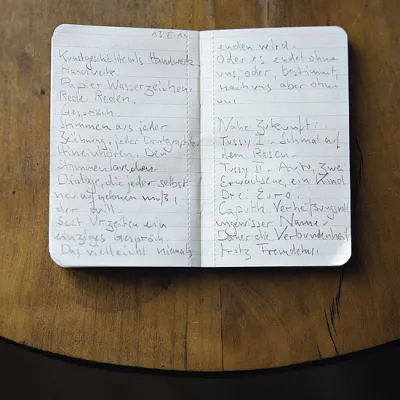 Kunstgeschichte als Handwerk.
Papier Wasserzeichen.
Rede. Reden.
Gespräch.
Stimmen aus jeder
Zeichnung, jeder Druckgraphik.
Hineinhören. Den
Stimmen lauschen.
Dialoge, die jeder selbst
neu aufnehmen muß,
der will.
Seit Urzeiten ein
einziges Gespräch.
Das vielleicht niemals
enden wird.
Oder es endet ohne
uns, oder, bestimmt,
nach uns aber ohne
uns.
Nahe Zukunft:
Tussy I. Schmal auf
dem Rasen.
Tussy II. Auto, zwei
Erwachsene, ein Kind.
Drei Euro.
Caputh. Verheißungsvoll
ungewisser Name.
Daher die Verbundenheit
trotz Fremdheit.